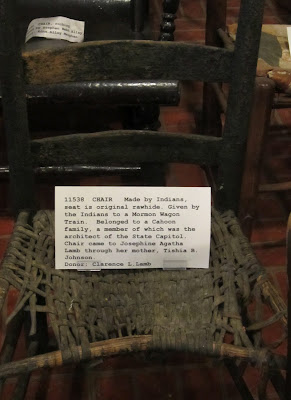 CHAIR,
11538 CHAIR Made by Indians,
seat is original rawhide. Given by
the Indians to a Mormon Wagon
Train. Belonged to a Cahoon
family, a member of which was the
architect of the State Capitol.
Chair came to Josephine Agatha
Lamb through her mother, Tishia R.
Johnson.
Donor: Clarence L. Lamb